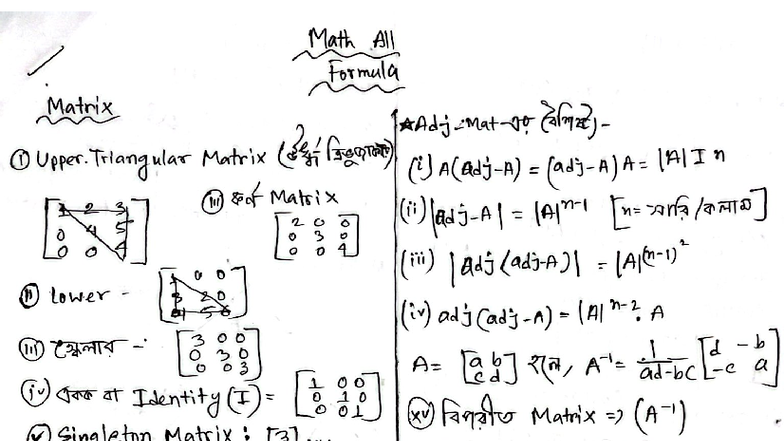 Math All
Formula
Matrix
(i) Upper Triangular Matrix (ঊর্ধ্ব ত্রিভুজাকার)
[1 2 3
0 4 5
0 0 6]
(iii) কর্ণ Matrix
[2 0 0
0 3 0
0 0 4]
(ii) Lower -
[1 0 0
3 2 0
4 5 6]
(iii) স্কেলার -
[3 0 0
0 3 0
0 0 3]
(iv) একক বা Identity (I) =
[1 0 0
0 1 0
0 0 1]
(v) Singleton Matrix: [3]
★Adj-Mat-এর বৈশিষ্ট্য -
(i) A(adj-A) = (adj-A) A = |A| I n
(ii) |adj-A| = |A|^{n-1} [n = সারি/কলাম]
(iii) |adj(adj-A)| = |A|^{(n-1)^2}
(iv) adj(adj-A) = |A|^{n-2}. A
A = [a b
c d] হলে, A^{-1} = 1/(ad-bc) [d -b
-c a]
(xv) বিপরীত Matrix => (A^{-1})